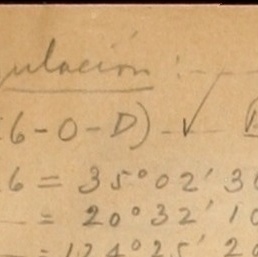 gulación :
(6-O-D) ✓
6 = 35°02' 30
= 20°32' 10
= 124°25' 20